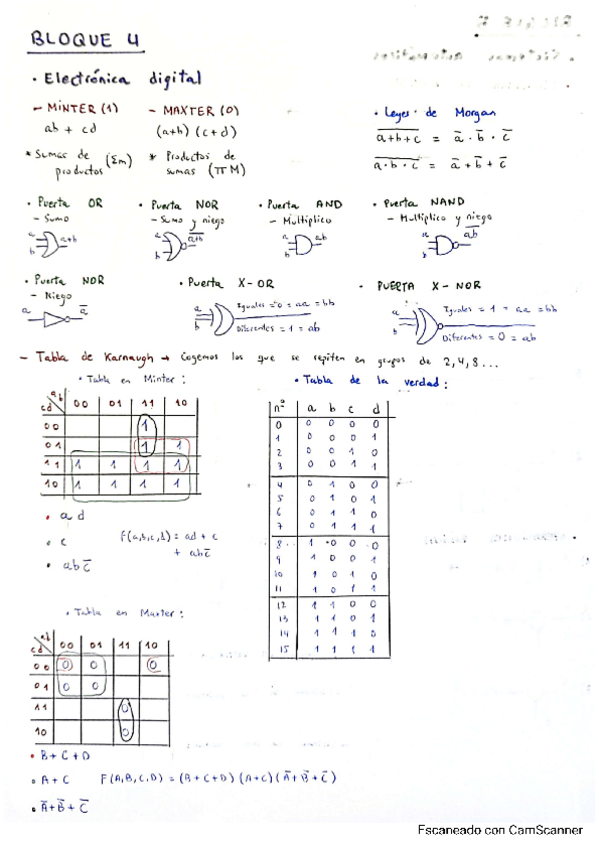 BLOQUE 4
• Electrónica digital
– MINTER (1)   – MAXTER (0)   • Leyes de Morgan
ab + cd   (a+b) (c+d)   \overline{a+b+c} = \bar{a} · \bar{b} · \bar{c}
* Sumas de productos (Σm)   * Productos de sumas (πM)   \overline{a·b·c} = \bar{a} + \bar{b} + \bar{c}
• Puerta OR   • Puerta NOR   • Puerta AND   • Puerta NAND
– Sumo   – Sumo y niego   – Multiplico   – Multiplico y niego
a b a+b   a b \overline{a+b}   a b ab   a b \overline{ab}
• Puerta NOR   • Puerta X-OR   • PUERTA X-NOR
– Niego
a \bar{a}   a b Iguales = 0 = aa = bb   a b Iguales = 1 = aa = bb
Diferentes = 1 = ab   Diferentes = 0 = ab
– Tabla de Karnaugh → Cogemos los que se repiten en grupos de 2, 4, 8...
• Tabla en Minter:
cd ab 00 01 11 10
00 1
01 1 1
11 1 1 1 1
10 1 1 1 1
• a d
• c   F(a,b,c,d) = ad + c + ab\bar{c}
• ab\bar{c}
• Tabla de la verdad:
nº a b c d
0 0 0 0 0
1 0 0 0 1
2 0 0 1 0
3 0 0 1 1
4 0 1 0 0
5 0 1 0 1
6 0 1 1 0
7 0 1 1 1
8 1 0 0 0
9 1 0 0 1
10 1 0 1 0
11 1 0 1 1
12 1 1 0 0
13 1 1 0 1
14 1 1 1 0
15 1 1 1 1
• Tabla en Maxter:
cd ab 00 01 11 10
00 0 0 0
01 0 0
11 0
10 0
• B + C + D
• A + C   F(A,B,C,D) = (B+C+D) (A+C) (\bar{A}+\bar{B}+\bar{C})
• \bar{A}+\bar{B}+\bar{C}
Escaneado con CamScanner